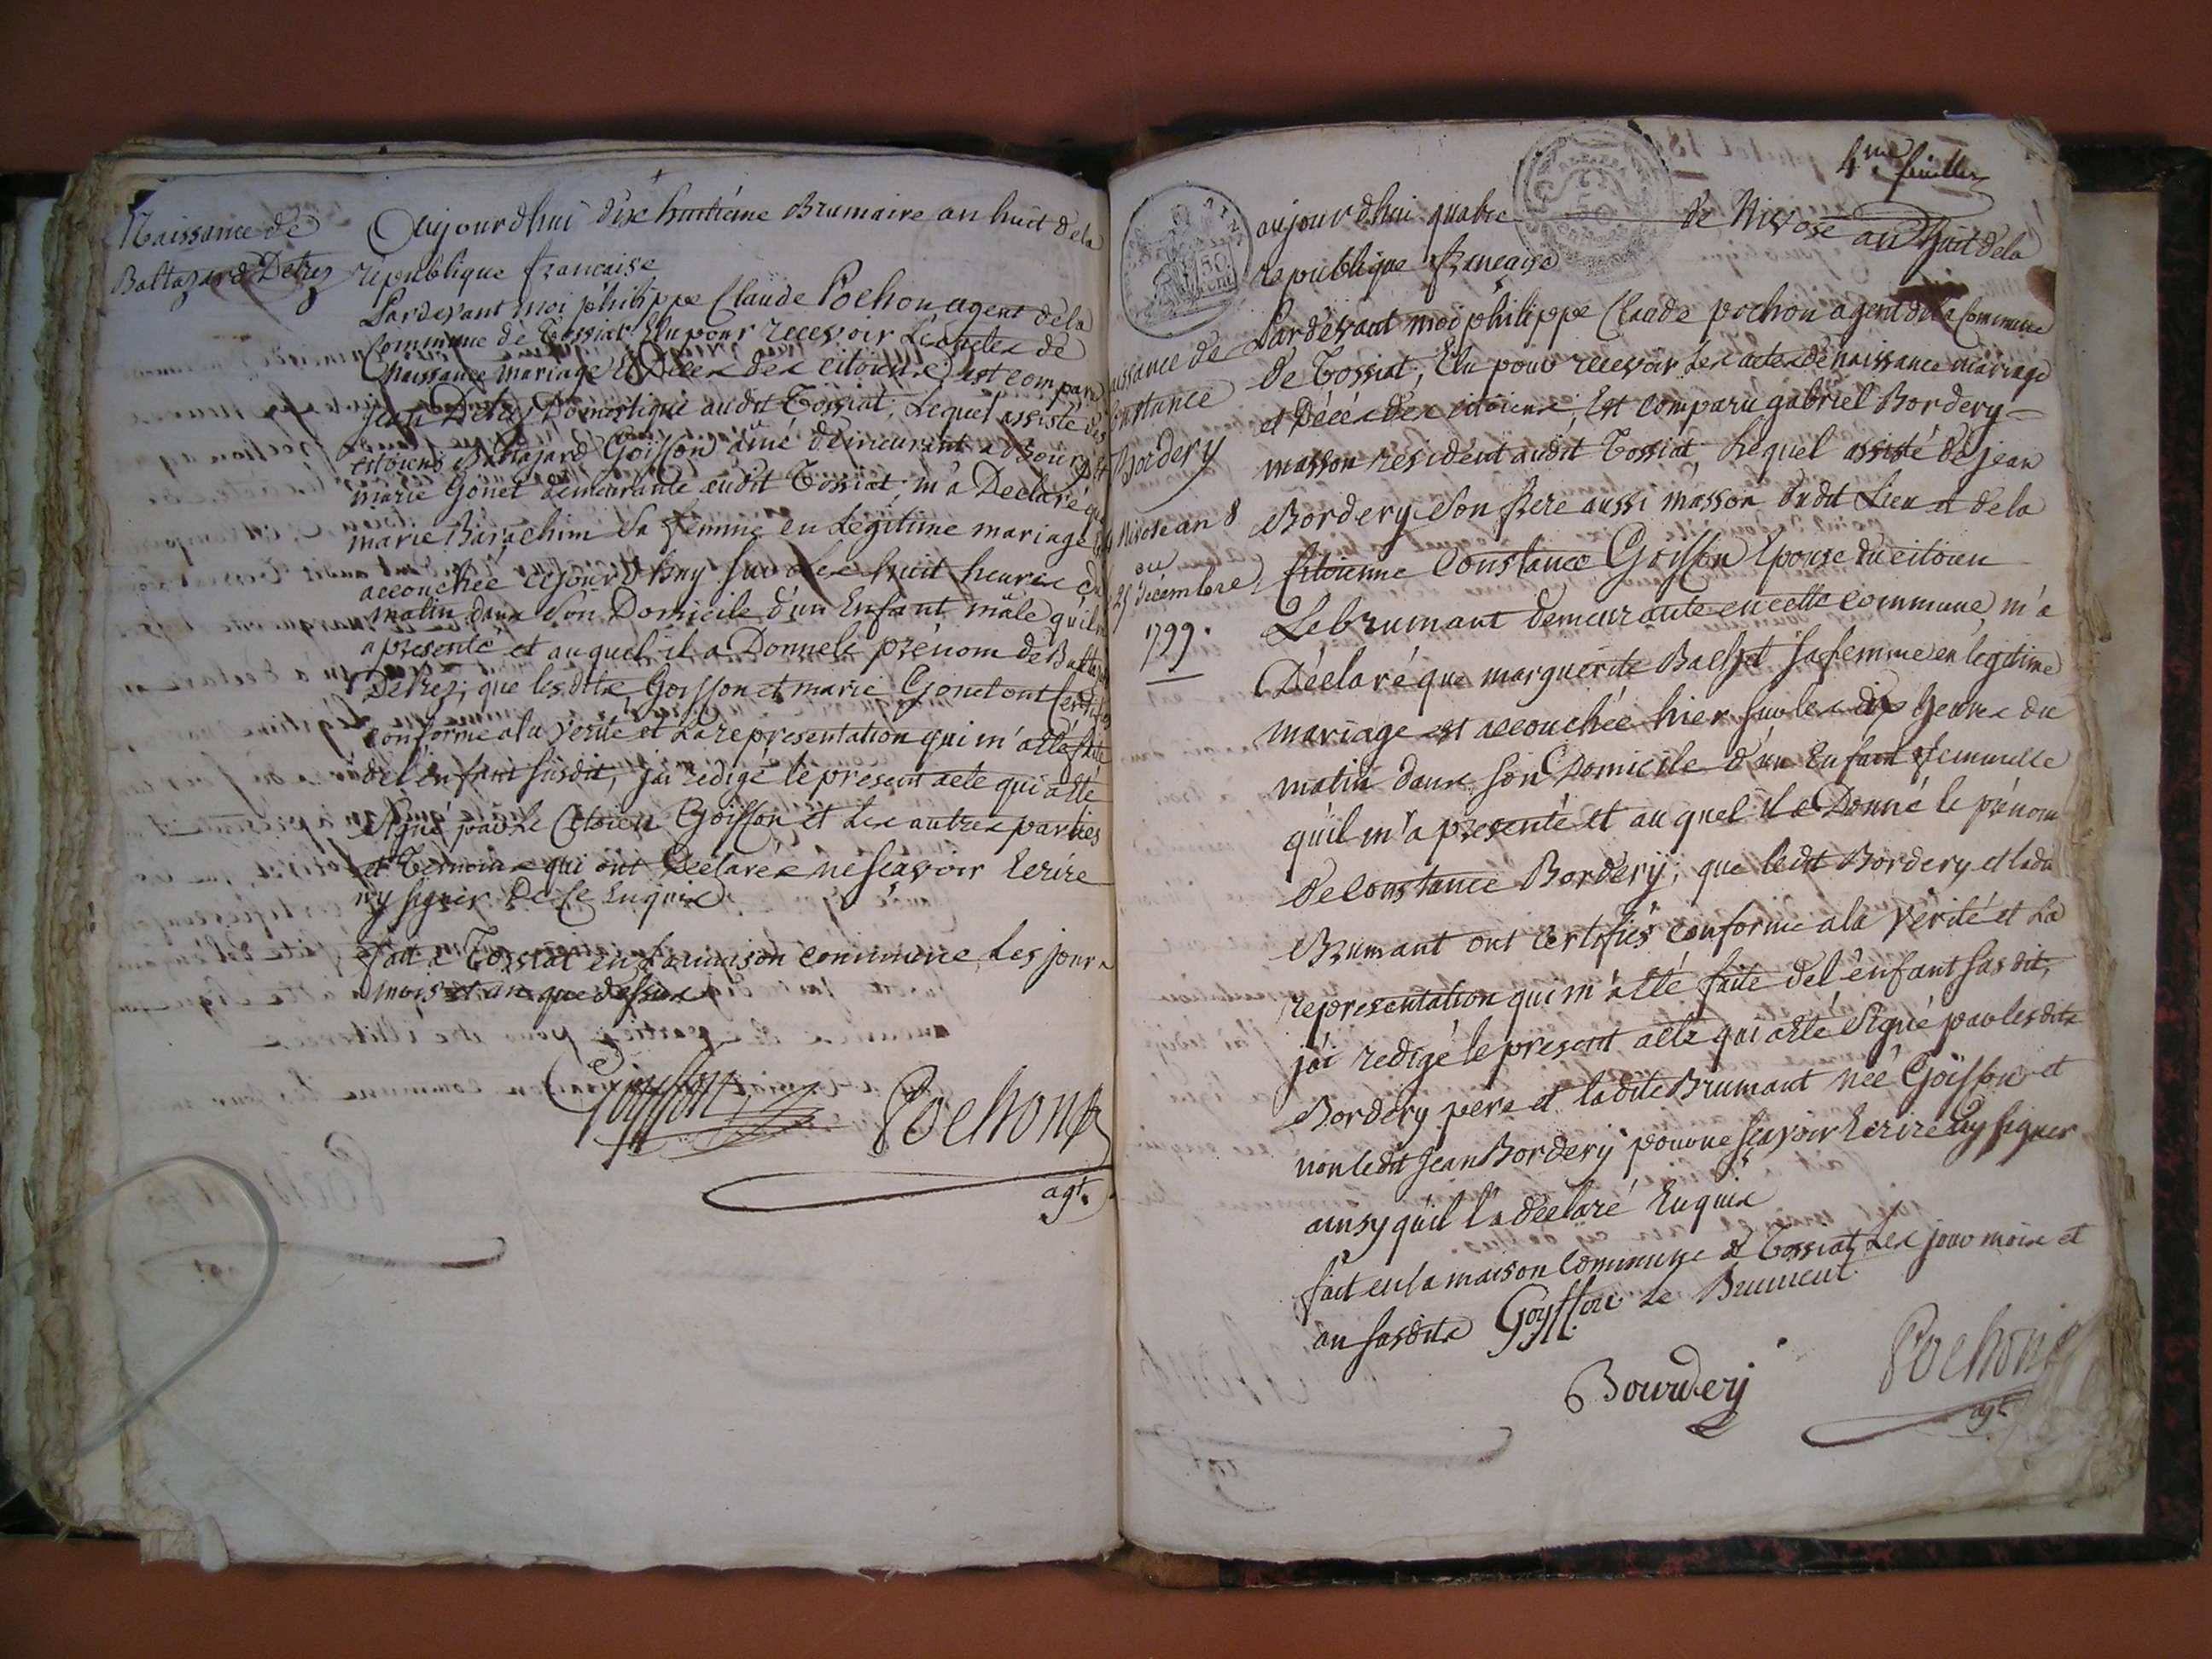 Naissance de
Baltazard Detrez
Aujourdhui dix huitiéme Brumaire an huit de la
république francaise
Pardevant moi philippe Claude Pochon agent de la
Commune de Tossiat Elu pour recevoir Les actes de
Naissance mariage et Décès des citoiens, est comparu
Jean Detrez Domestique audit Tossiat, Lequel assisté des
citoiens Baltazard Goisson ainé demeurant a Bourg et
marie Gonet demeurante audit Tossiat, m'a Declaré que
marie Barachim Sa femme en Legitime mariage
accouchée cejourdhuy sur Les huit heures du
matin dans Son Domicile d'un Enfant mâle qu'il
a presenté et auquel il a Donné le prénom de Balta
Detrez; que lesdits Goisson et marie Gonet ont Certifiés
conforme a la vérité et La representation qui m'a été faite
de l'enfant susdit, j'ai redigé le present acte qui a été
Signé par Le Citoien Goisson et Les autres parties
et Temoins qui ont Declarés ne scavoir Ecrire
ny signer De Ce Enquis
fait a Tossiat en La maison commune Les jour
mois et an que dessus
Goisson Pochon
agt.
4me feuillet
aujourdhui quatre de Nivose an huit de la
republique française
Naissance de
Constance
Bordery
4 Nivose an 8
ou
25 décembre
1799.
Pardevant moi philippe Claude pochon agent de la Commune
de Tossiat, Elu pour recevoir Les actes de naissance mariage
et Décés des citoiens, Est comparu gabriel Bordery
masson résident audit Tossiat, Lequel assisté de jean
Bordery Son frere aussi masson dudit Lieu et de la
Citoienne Constance Goisson Epouse du citoien
Lebrumant demeurante en cette commune, m'a
Déclaré que marguerite sa femme en legitime
mariage est accouchée hier sur les dix heures du
matin dans son Domicile d'un Enfant femmelle
qu'il m'a presenté et auquel il a Donné le prénom
de Constance Bordery; que ledit Bordery et ladte
Brumant ont certifiés conforme a la verité et La
representation qui m'a été faite de l'enfant susdit,
j'ai redigé le present acte qui a été Signé par lesdits
Bordery pere et ladite Brumant née Goisson et
non ledit Jean Bordery pour ne scavoir Ecrire ny signer
ainsy qu'il l'a déclaré Enquis
fait en la maison commune de Tossiat Les jour mois et
an susdits Goysson Le Brument
Bourdery Pochon
agt